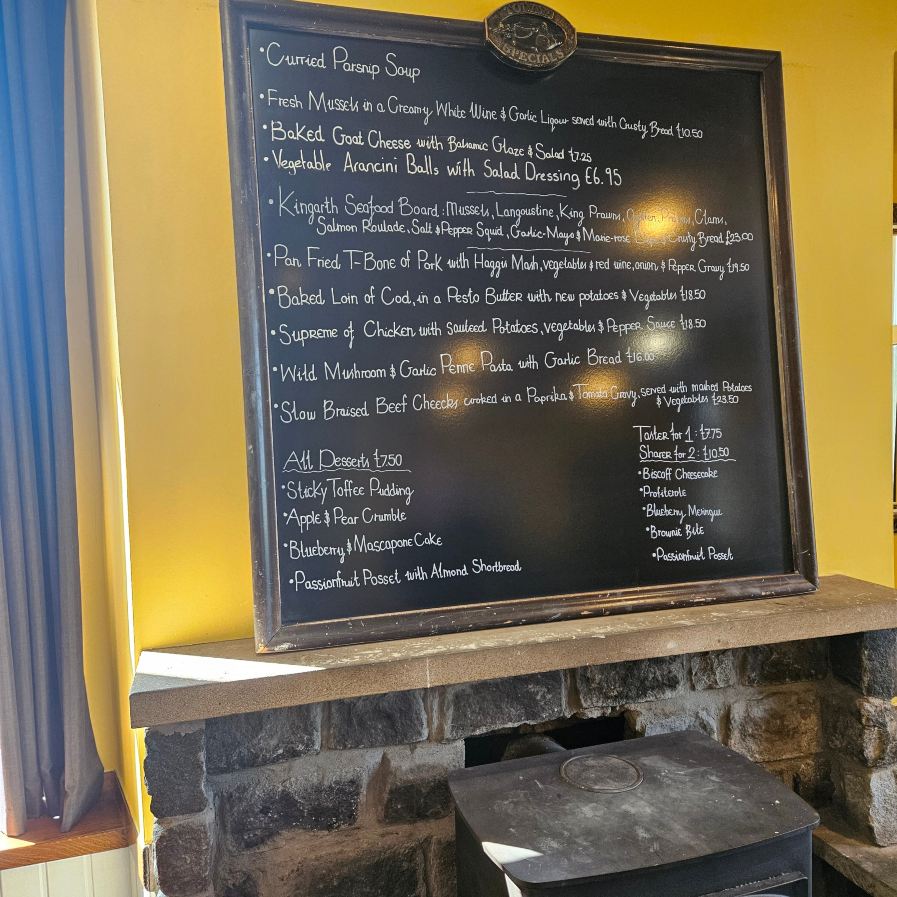 SPECIALS
• Curried Parsnip Soup
• Fresh Mussels in a Creamy White Wine & Garlic Liqour served with Crusty Bread £10.50
• Baked Goat Cheese with Balsamic Glaze & Salad £7.25
• Vegetable Arancini Balls with Salad Dressing £6.95
• Kingarth Seafood Board: Mussels, Langoustine, King Prawns, Clams,
Salmon Roulade, Salt & Pepper Squid, Garlic-Mayo & Marie-rose Crusty Bread £23.00
• Pan Fried T-Bone of Pork with Haggis Mash, vegetables & red wine, onion & Pepper Gravy £19.50
• Baked Loin of Cod, in a Pesto Butter with new potatoes & Vegetables £18.50
• Supreme of Chicken with Sauteed Potatoes, vegetables & Pepper Sauce £18.50
• Wild Mushroom & Garlic Penne Pasta with Garlic Bread £16.00
• Slow Braised Beef Cheecks cooked in a Paprika & Tomato Gravy, served with mashed Potatoes
& Vegetables £23.50
All Desserts £7.50
• Sticky Toffee Pudding
• Apple & Pear Crumble
• Blueberry & Mascapone Cake
• Passionfruit Posset with Almond Shortbread
Taster for 1 : £7.75
Sharer for 2 : £10.50
• Biscoff Cheesecake
• Profiterole
• Blueberry Meringue
• Brownie Bite
• Passionfruit Posset